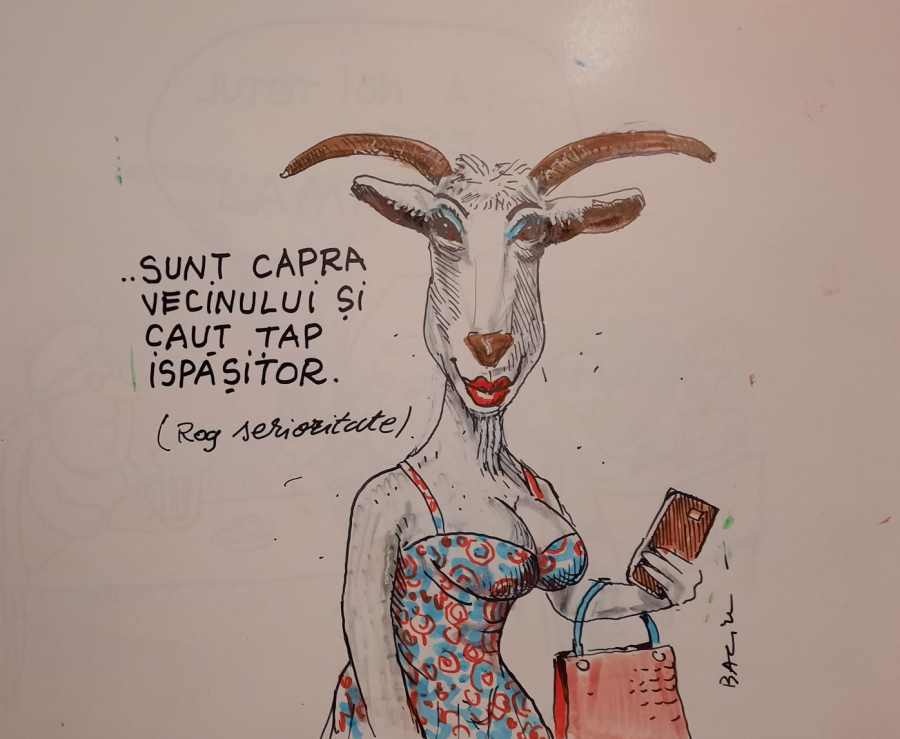 ..SUNT CAPRA
VECINULUI ȘI
CAUT ȚAP
ISPĂȘITOR.
(Rog seriozitate)
BACIU
LA NOI TOTUL